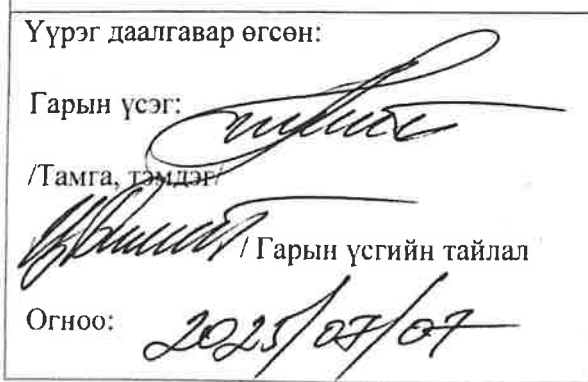 Үүрэг даалгавар өгсөн:
Гарын үсэг:
/Тамга, тэмдэг/
/ Гарын үсгийн тайлал
Огноо: 2025/07/07